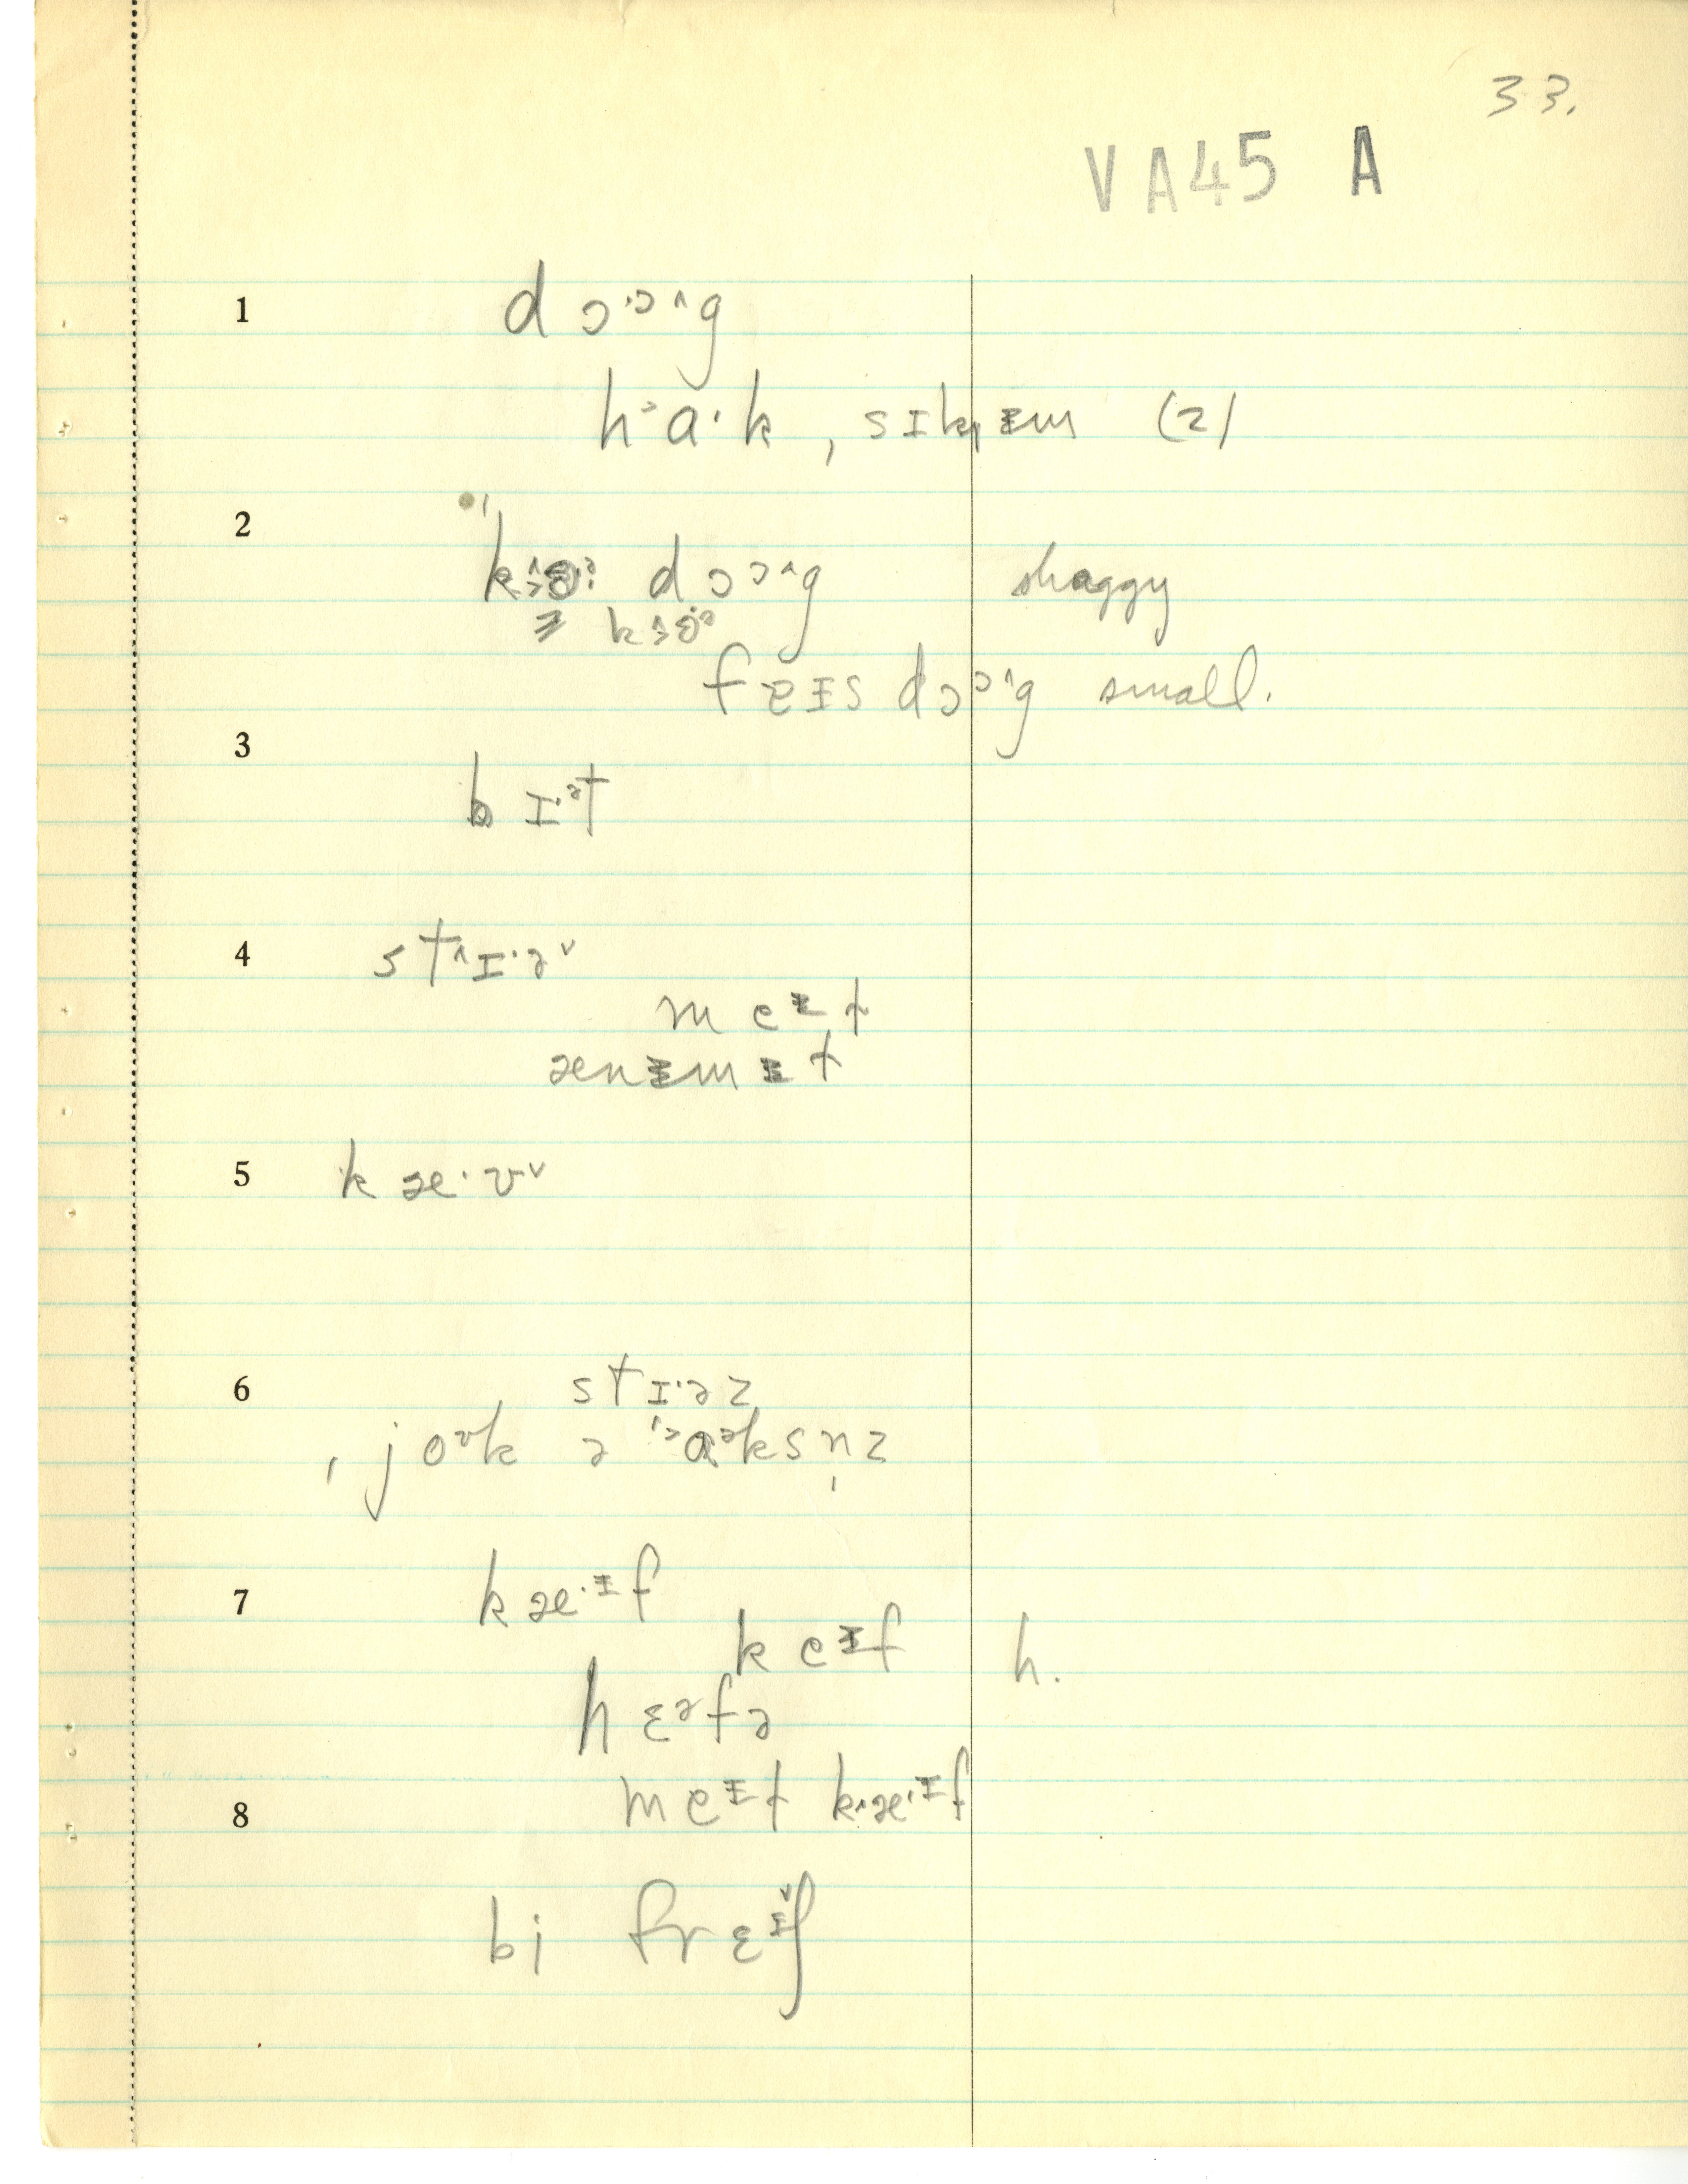 33.
VA45 A
1 dɔ·ɔ^g
h˃ɑ·k, sɪkᵻm (2)
2 dɔɔ^g shaggy
fɐᵻs dɔɔ^g small.
3 bɪ·ət
4 st^ɪ·əᵛ
meᵻt
ænᵻmᵻt
5 kæ·vᵛ
6 stɪ·əz
ˌjoʊk ə ˈ˃ɑəksn̩z
7 kæ·ᵻf
keᵻf h.
hɛəfə
meᵻt k^æ·ᵻf
8
bi frɛᵻʃ